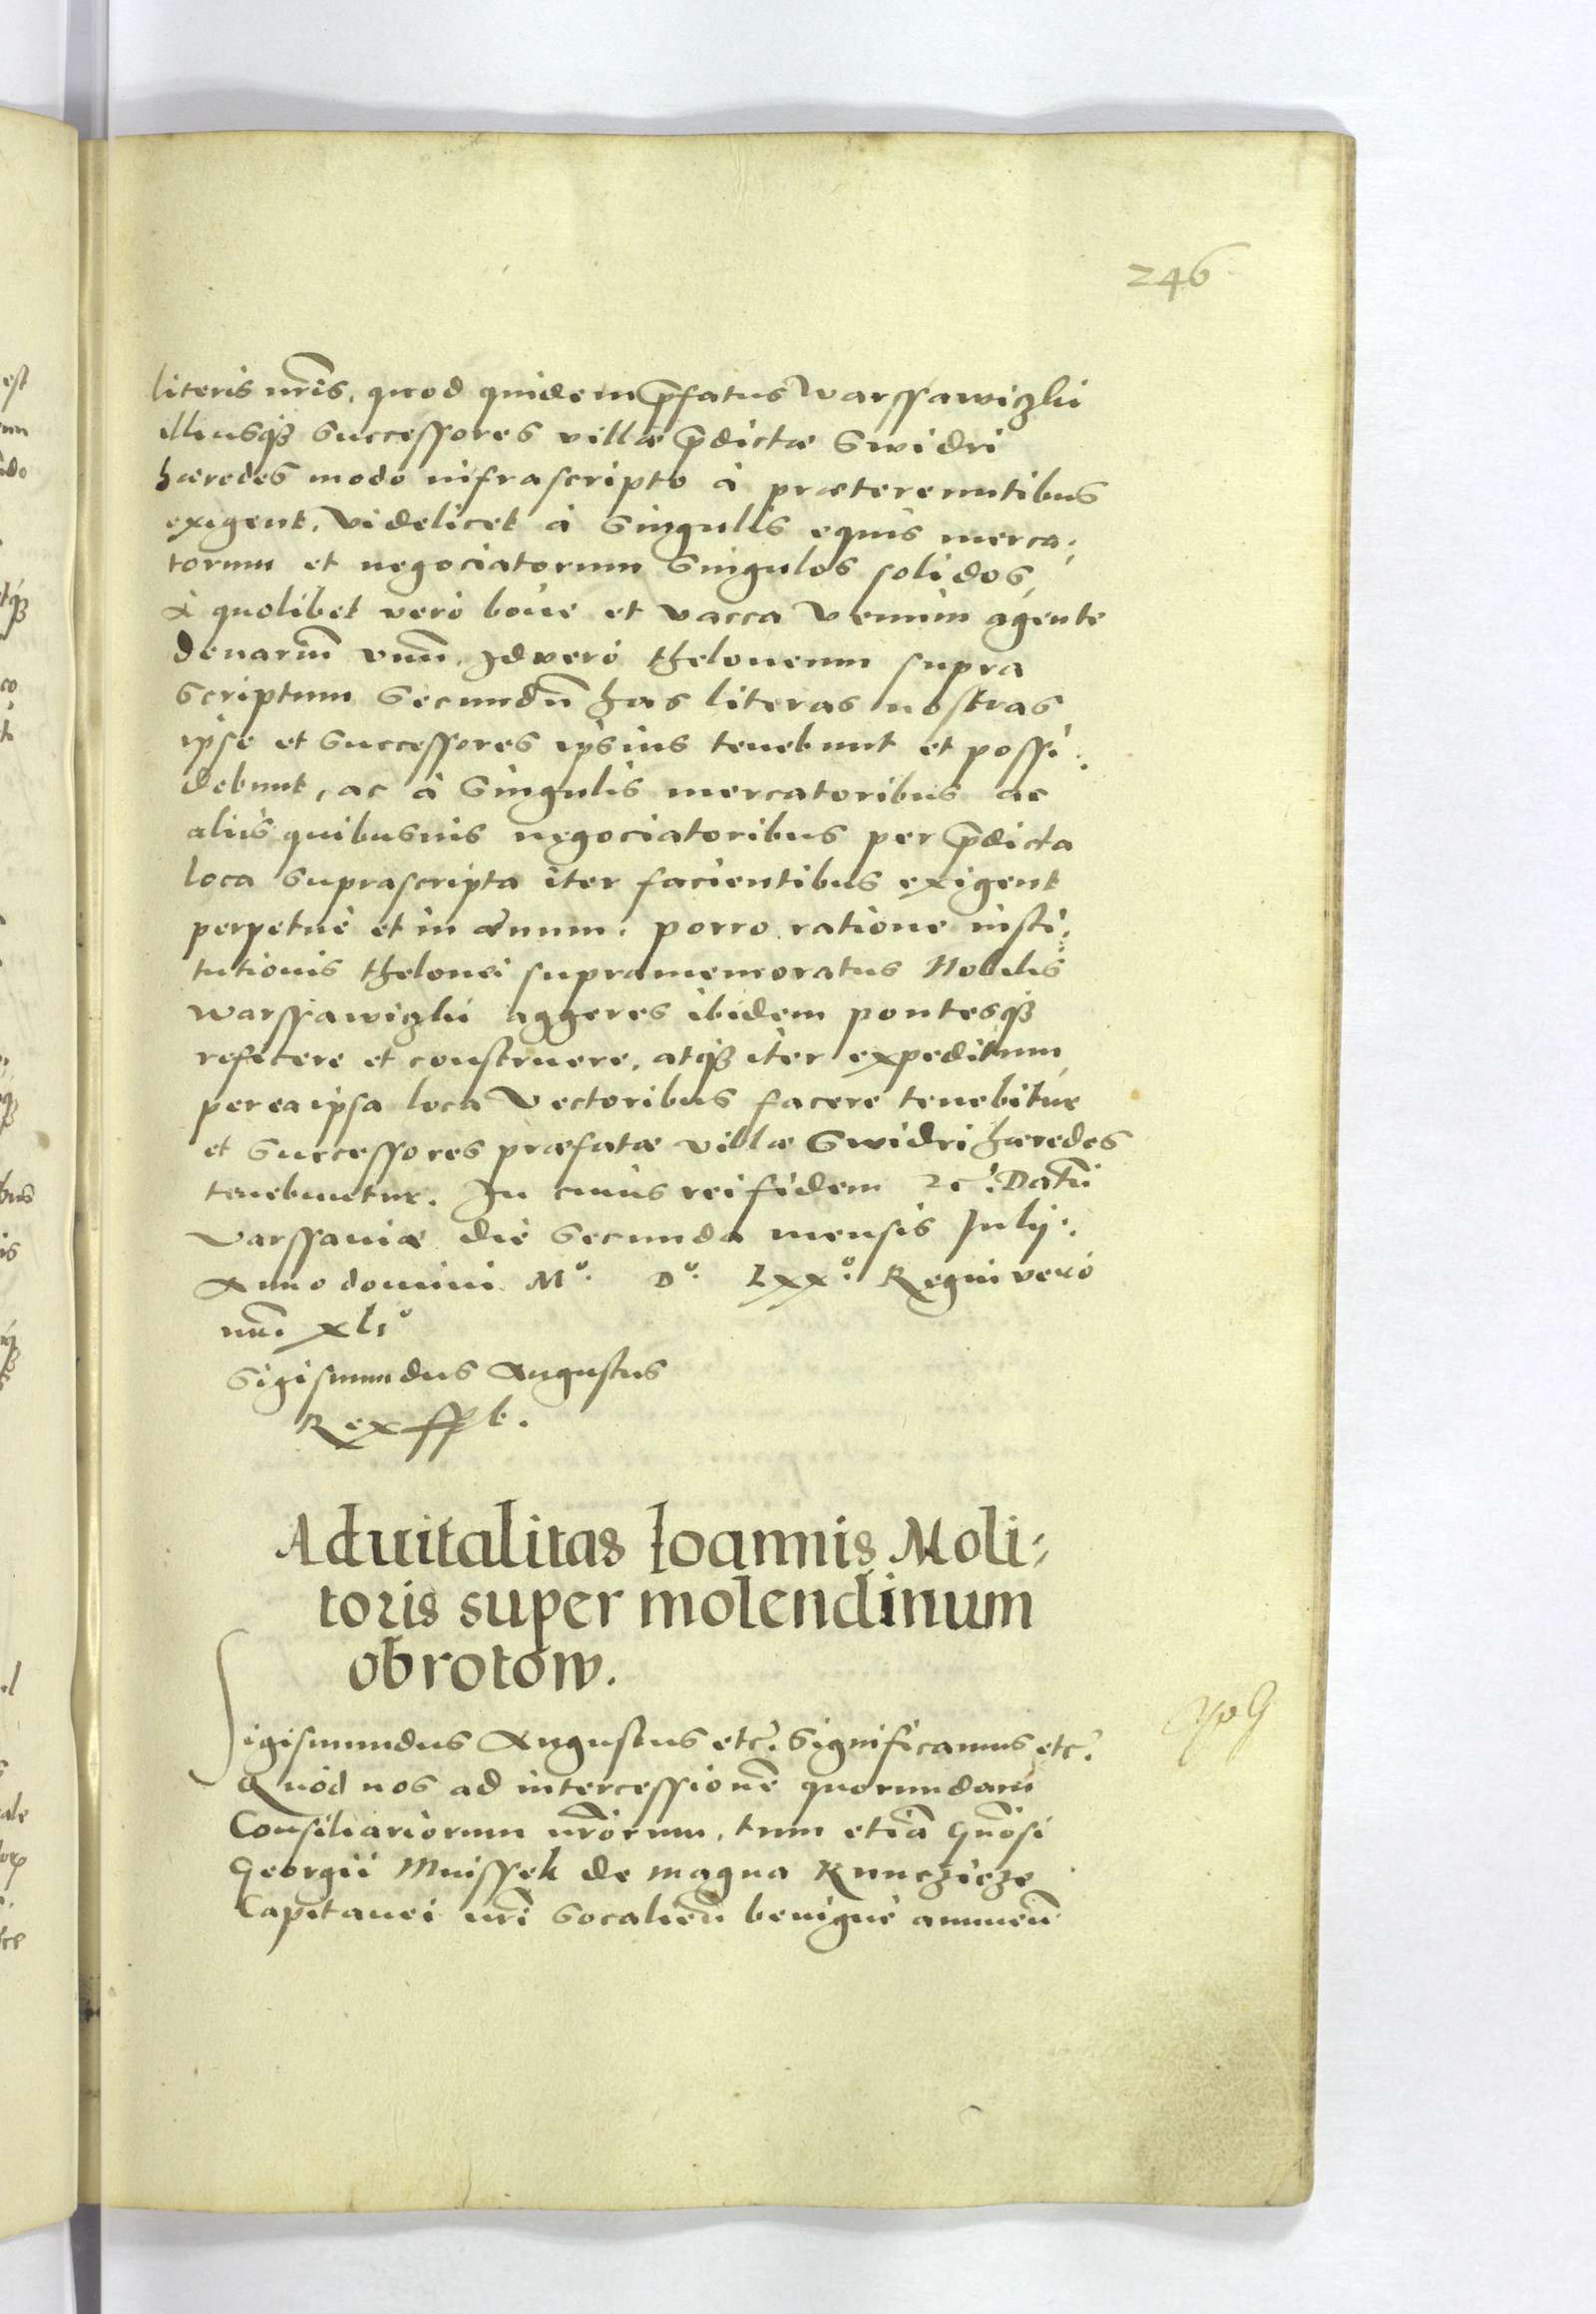 246
literis nr̃is, quod quidem p̃fatus Warssawiczki
illiusq3 Successores villæ p̃dictæ Swidri
hæredes modo infrascripto à prætereuntibus
exigent, Videlicet à Singulis equis merca:
torum et negociatorum Singulos solidos,
A quolibet vero boue et vacca venum agente
denariũ vnũ, Id vero theloneum supra
Scriptum Secundũ has literas nostras
ipse et Successores ipsius tenebunt et possi:
debunt, ac à Singulis mercatoribus ac
alijs quibusuis negociatoribus per p̃dicta
loca Suprascripta iter facientibus exigent
perpetuè et in æuum. porro ratione insti:
tutionis thelonei supramemoratus Nobilis
Warssawiczki aggeres ibidem pontesq3
reficere et construere, atq3 iter expeditum,
per ea ipsa loca Vectoribus facere tenebitur
et Successores præfatæ villæ Swidri hæredes
tenebuntur. In cuius rei fidem etc̃. Datũ
Varssauiæ die Secunda mensis Julij.
Anno domini Mº. Dº. Lxxº. Regni vero
nr̃i xliº
Sigismundus Augustus
Rex sspt.
Aduitalitas Ioannis Moli:
toris super molendinum
obrotow.
Sigismundus Augustus etc̃. Significamus etc̃.
Quod nos ad intercessionẽ quorundam
Consiliariorum nr̃orum, tum etiã Gñosi
Georgii Mnissek de magna Kunczicze
Capitanei nr̃i Socalieñ benignè annueñ